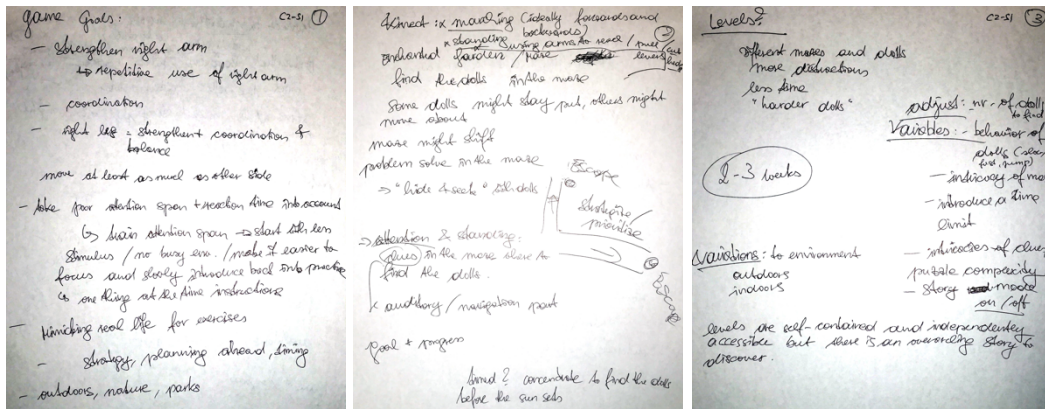 game Goals:
C2-S1 1
- Strengthen right arm
↳ repetitive use of right arm
- coordination
- right leg = strengthen + coordination &
balance
move at least as much as other side
- take poor attention span + reaction time into account
↳ train attention span → start with less
stimulus / no busy env. / make it easier to
focus and slowly introduce back into practice
↳ one thing at the time instructions
- Mimicking real life for exercises
- strategy, planning ahead, timing
- outdoors, nature, parks
Kinect: x marching (ideally forwards and
backwards) 2
x standing using arms to reach / pull
levers
enchanted garden / maze
find the dolls in the maze
Some dolls might stay put, others might
move about
maze might shift
problem solve in the maze
→ "hide & seek" with dolls
Escape
strategize /
prioritize
→ attention & standing:
clues in the maze where to
find the dolls.
x auditory / navigation part
Escape
goal + progress
timed? concentrate to find the dolls
before the sun sets
Levels?
C2-S1 3
different mazes and dolls
more distractions
less time
"harder dolls"
adjust: nr. of dolls
to find
Variables: - behavior of
dolls (slow,
fast, jump)
2-3 weeks
- intricacy of maze
- introduce a time
limit
- intricacies of clues
Variations: to environment
outdoors
indoors
puzzle complexity
- story mode
on / off
levels are self-contained and independently
accessible but there is an overarching story to
discover.